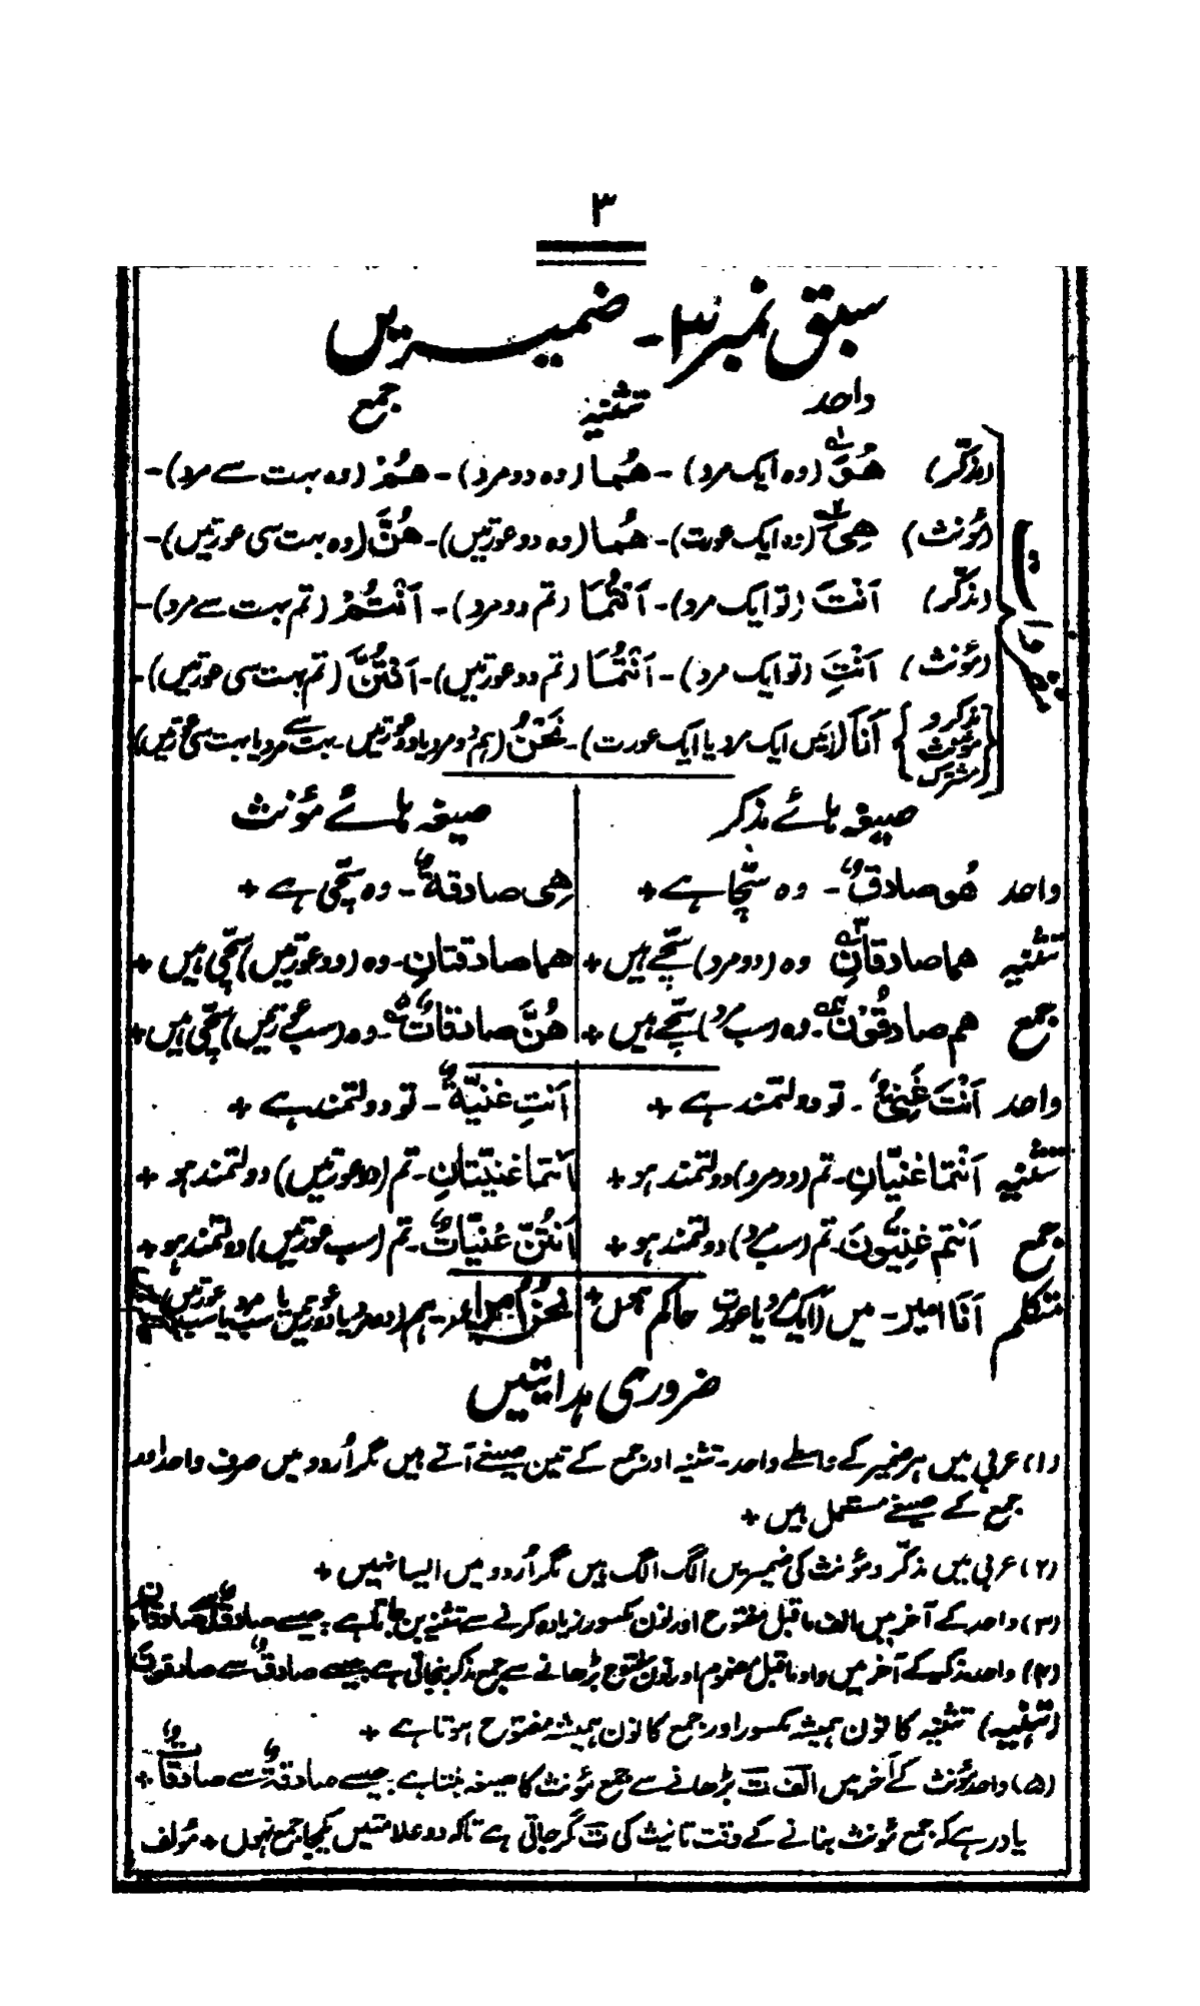 ۳
سبق نمبر ۳ - ضمیریں
واحد تثنیہ جمع
(مذکّر) هُوَ (وہ ایک مرد) - هُمَا (وہ دو مرد) - هُمْ (وہ بہت سے مرد) -
(مؤنث) هِیَ (وہ ایک عورت) - هُمَا (وہ دو عورتیں) - هُنَّ (وہ بہت سی عورتیں) -
(مذکّر) اَنْتَ (تو ایک مرد) - اَنْتُمَا (تم دو مرد) - اَنْتُمْ (تم بہت سے مرد) -
(مؤنث) اَنْتِ (تو ایک مرد) - اَنْتُمَا (تم دو عورتیں) - اَنْتُنَّ (تم بہت سی عورتیں) -
{مذکر و مؤنث مشترک} اَنَا (میں ایک مرد یا ایک عورت) - نَحْنُ (ہم دو مرد یا دو عورتیں - بہت سے مرد یا بہت سی عورتیں)
صیغہ ہائے مذکر صیغہ ہائے مؤنث
واحد هُو صادقٌ - وہ سچّا ہے + هِی صادقةٌ - وہ سچّی ہے +
تثنیہ هما صادقانِ وہ (دو مرد) سچّے ہیں + هما صادقتانِ - وہ (دو عورتیں) سچّی ہیں +
جمع هم صادقُوْنَ - وہ (سب مرد) سچّے ہیں + هُنَّ صادقاتٌ - وہ (سب عورتیں) سچّی ہیں +
واحد اَنْتَ غَنِیٌّ - تو دولتمند ہے + اَنتِ غنیّةٌ - تو دولتمند ہے +
تثنیہ اَنْتما غنیّانِ - تم (دو مرد) دولتمند ہو + اَنتما غنیّتانِ - تم (دو عورتیں) دولتمند ہو +
جمع اَنْتم غنِیُّونَ - تم (سب مرد) دولتمند ہو + اَنتُنّ غنیّاتٌ - تم (سب عورتیں) دولتمند ہو +
متکلم اَنَا امیر - میں (ایک مرد یا عورت) حاکم ہوں + نحنُ اُمراء - ہم (دو مرد یا دو عورتیں یا سب مرد یا سب عورتیں)
ضروری ہدایتیں
(۱) عربی میں ہر ضمیر کے واسطے واحد - تثنیہ اور جمع کے تین صیغے آتے ہیں مگر اُردو میں صرف واحد اور
جمع کے صیغے مستعمل ہیں +
(۲) عربی میں مذکّر و مؤنث کی ضمیریں الگ الگ ہیں مگر اُردو میں ایسا نہیں +
(۳) واحد کے آخر میں الف ماقبل مفتوح اور نون مکسور زیادہ کرنے سے تثنیہ بن جاتا ہے جیسے صادقٌ سے صادقانِ
(۴) واحد مذکر کے آخر میں واو ماقبل مضموم اور نون مفتوح بڑھانے سے جمع مذکر بنجاتی ہے جیسے صادقٌ سے صادقونَ
(تنبیہ) تثنیہ کا نون ہمیشہ مکسور اور جمع کا نون ہمیشہ مفتوح ہوتا ہے +
(۵) واحد مؤنث کے آخر میں الف ت بڑھانے سے جمع مؤنث کا صیغہ بنتا ہے جیسے صادقةٌ سے صادقاتٌ +
یاد رہے کہ جمع مؤنث بنانے کے وقت تانیث کی ت گر جاتی ہے تاکہ دو علامتیں یکجا جمع نہوں + مؤلف